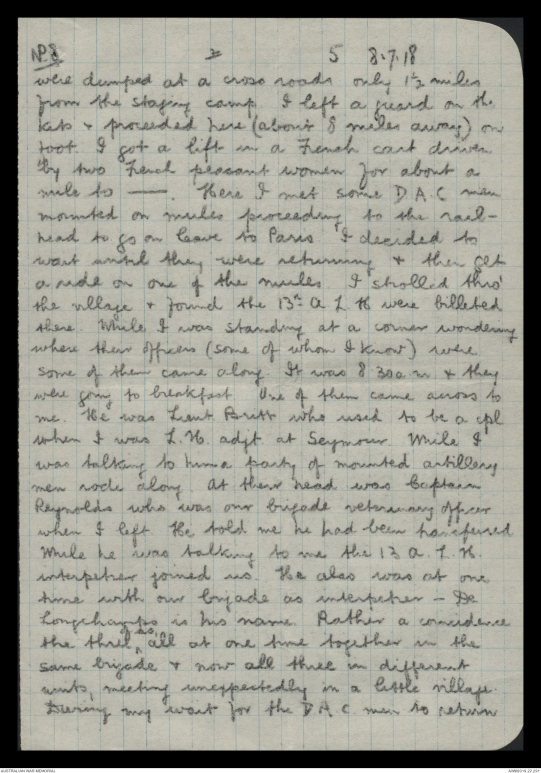 No 8 2 5 8.7.18
were dumped at a cross roads only 1½ miles
from the staging camp. I left a guard on the
kits & proceeded here (about 8 miles away) on
foot. I got a lift in a French cart driven
by two French peasant women for about a
mile to ——. Here I met some D.A.C men
mounted on mules proceeding to the rail-
head to go on leave to Paris I decided to
wait until they were returning & then get
a ride on one of the mules I strolled thro'
the village & found the 13th A L H were billeted
there. While I was standing at a corner wondering
where their officers (some of whom I know) were
some of them came along. It was 8 30 a.m & they
were going to breakfast. One of them came across to
me. He was Lieut Britt who used to be a cpl
when I was L.H. adjt at Seymour. While I
was talking to him a party of mounted artillery
men rode along. At their head was Captain
Reynolds who was our brigade veterinary officer
when I left. He told me he had been transferred
While he was talking to me the 13 A. L. H.
interpeter joined us. He also was at one
time with our brigade as interpeter – De
Longchamps is his name. Rather a coincidence
the three of us, all at one time together in the
same brigade & now all three in different
units, meeting unexpectedly in a little village.
During my wait for the D A C. men to return
AUSTRALIAN WAR MEMORIAL